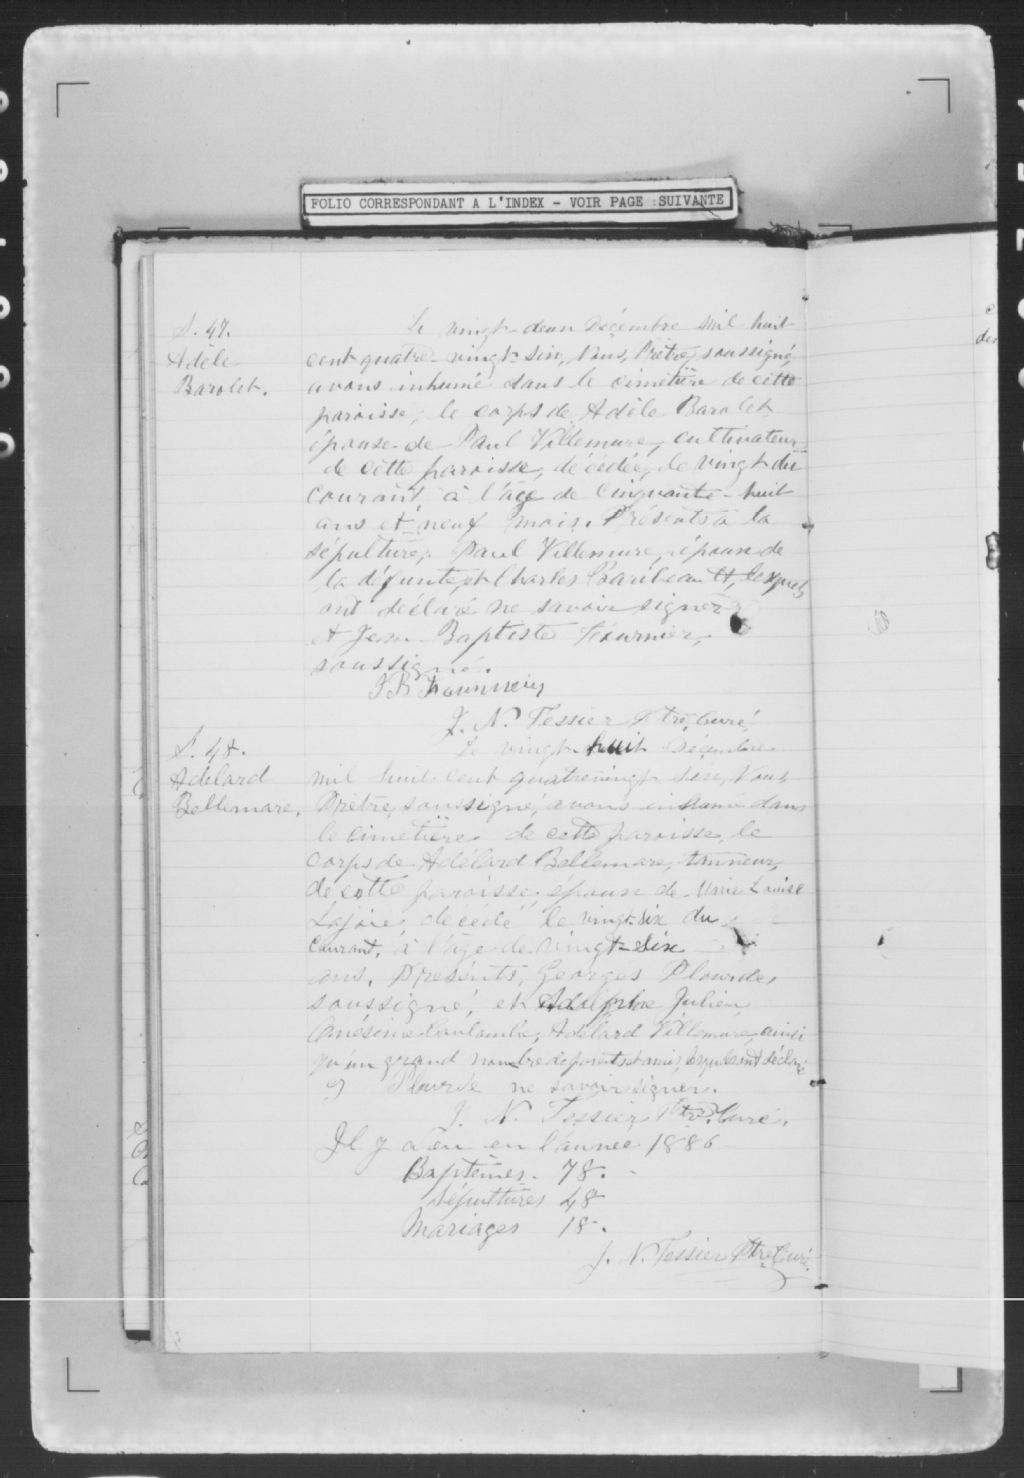 FOLIO CORRESPONDANT A L'INDEX - VOIR PAGE SUIVANTE
S. 47.
Adèle
Barolet.
Le vingt-deux Décembre mil huit
cent quatre-vingt-six, Nous, Prêtre, soussigné,
avons inhumé dans le cimetière de cette
paroisse, le corps de Adèle Barolet
épouse de Paul Villemure, cultivateur
de cette paroisse, décédée, le vingt du
courant à l'âge de cinquante-huit
ans et neuf mois. Présents à la
sépulture, Paul Villemure, époux de
la défunte, et Charles Baribeau et, lesquels
ont déclaré ne savoir signer
et Jean-Baptiste Fournier,
soussigné.
J B Fournier
J. N. Tessier Ptre, Curé,
S. 48.
Adélard
Bellemare.
Le vingt-huit Décembre
mil huit cent quatre vingt six, Nous
Prêtre, soussigné, avons inhumé dans
le cimetière de cette paroisse, le
corps de Adélard Bellemare, tanneur,
de cette paroisse, époux de Marie Louise
Lajoie décédé le vingt-six du
courant, à l'âge de vingt-six
ans. Présents, Georges Plourde,
soussigné, et Adolphe Julien
Onésime Coulombe, Adélard Villemure, ainsi
qu'un grand nombre de parents et amis, lesquels ont déclaré
G Plourde ne savoir signer.
J. N. Tessier Ptre, Curé.
Il y a eu en l'année 1886
Baptêmes. 78.
Sépultures 48
Mariages 18.
J. N. Tessier Ptre, Curé.